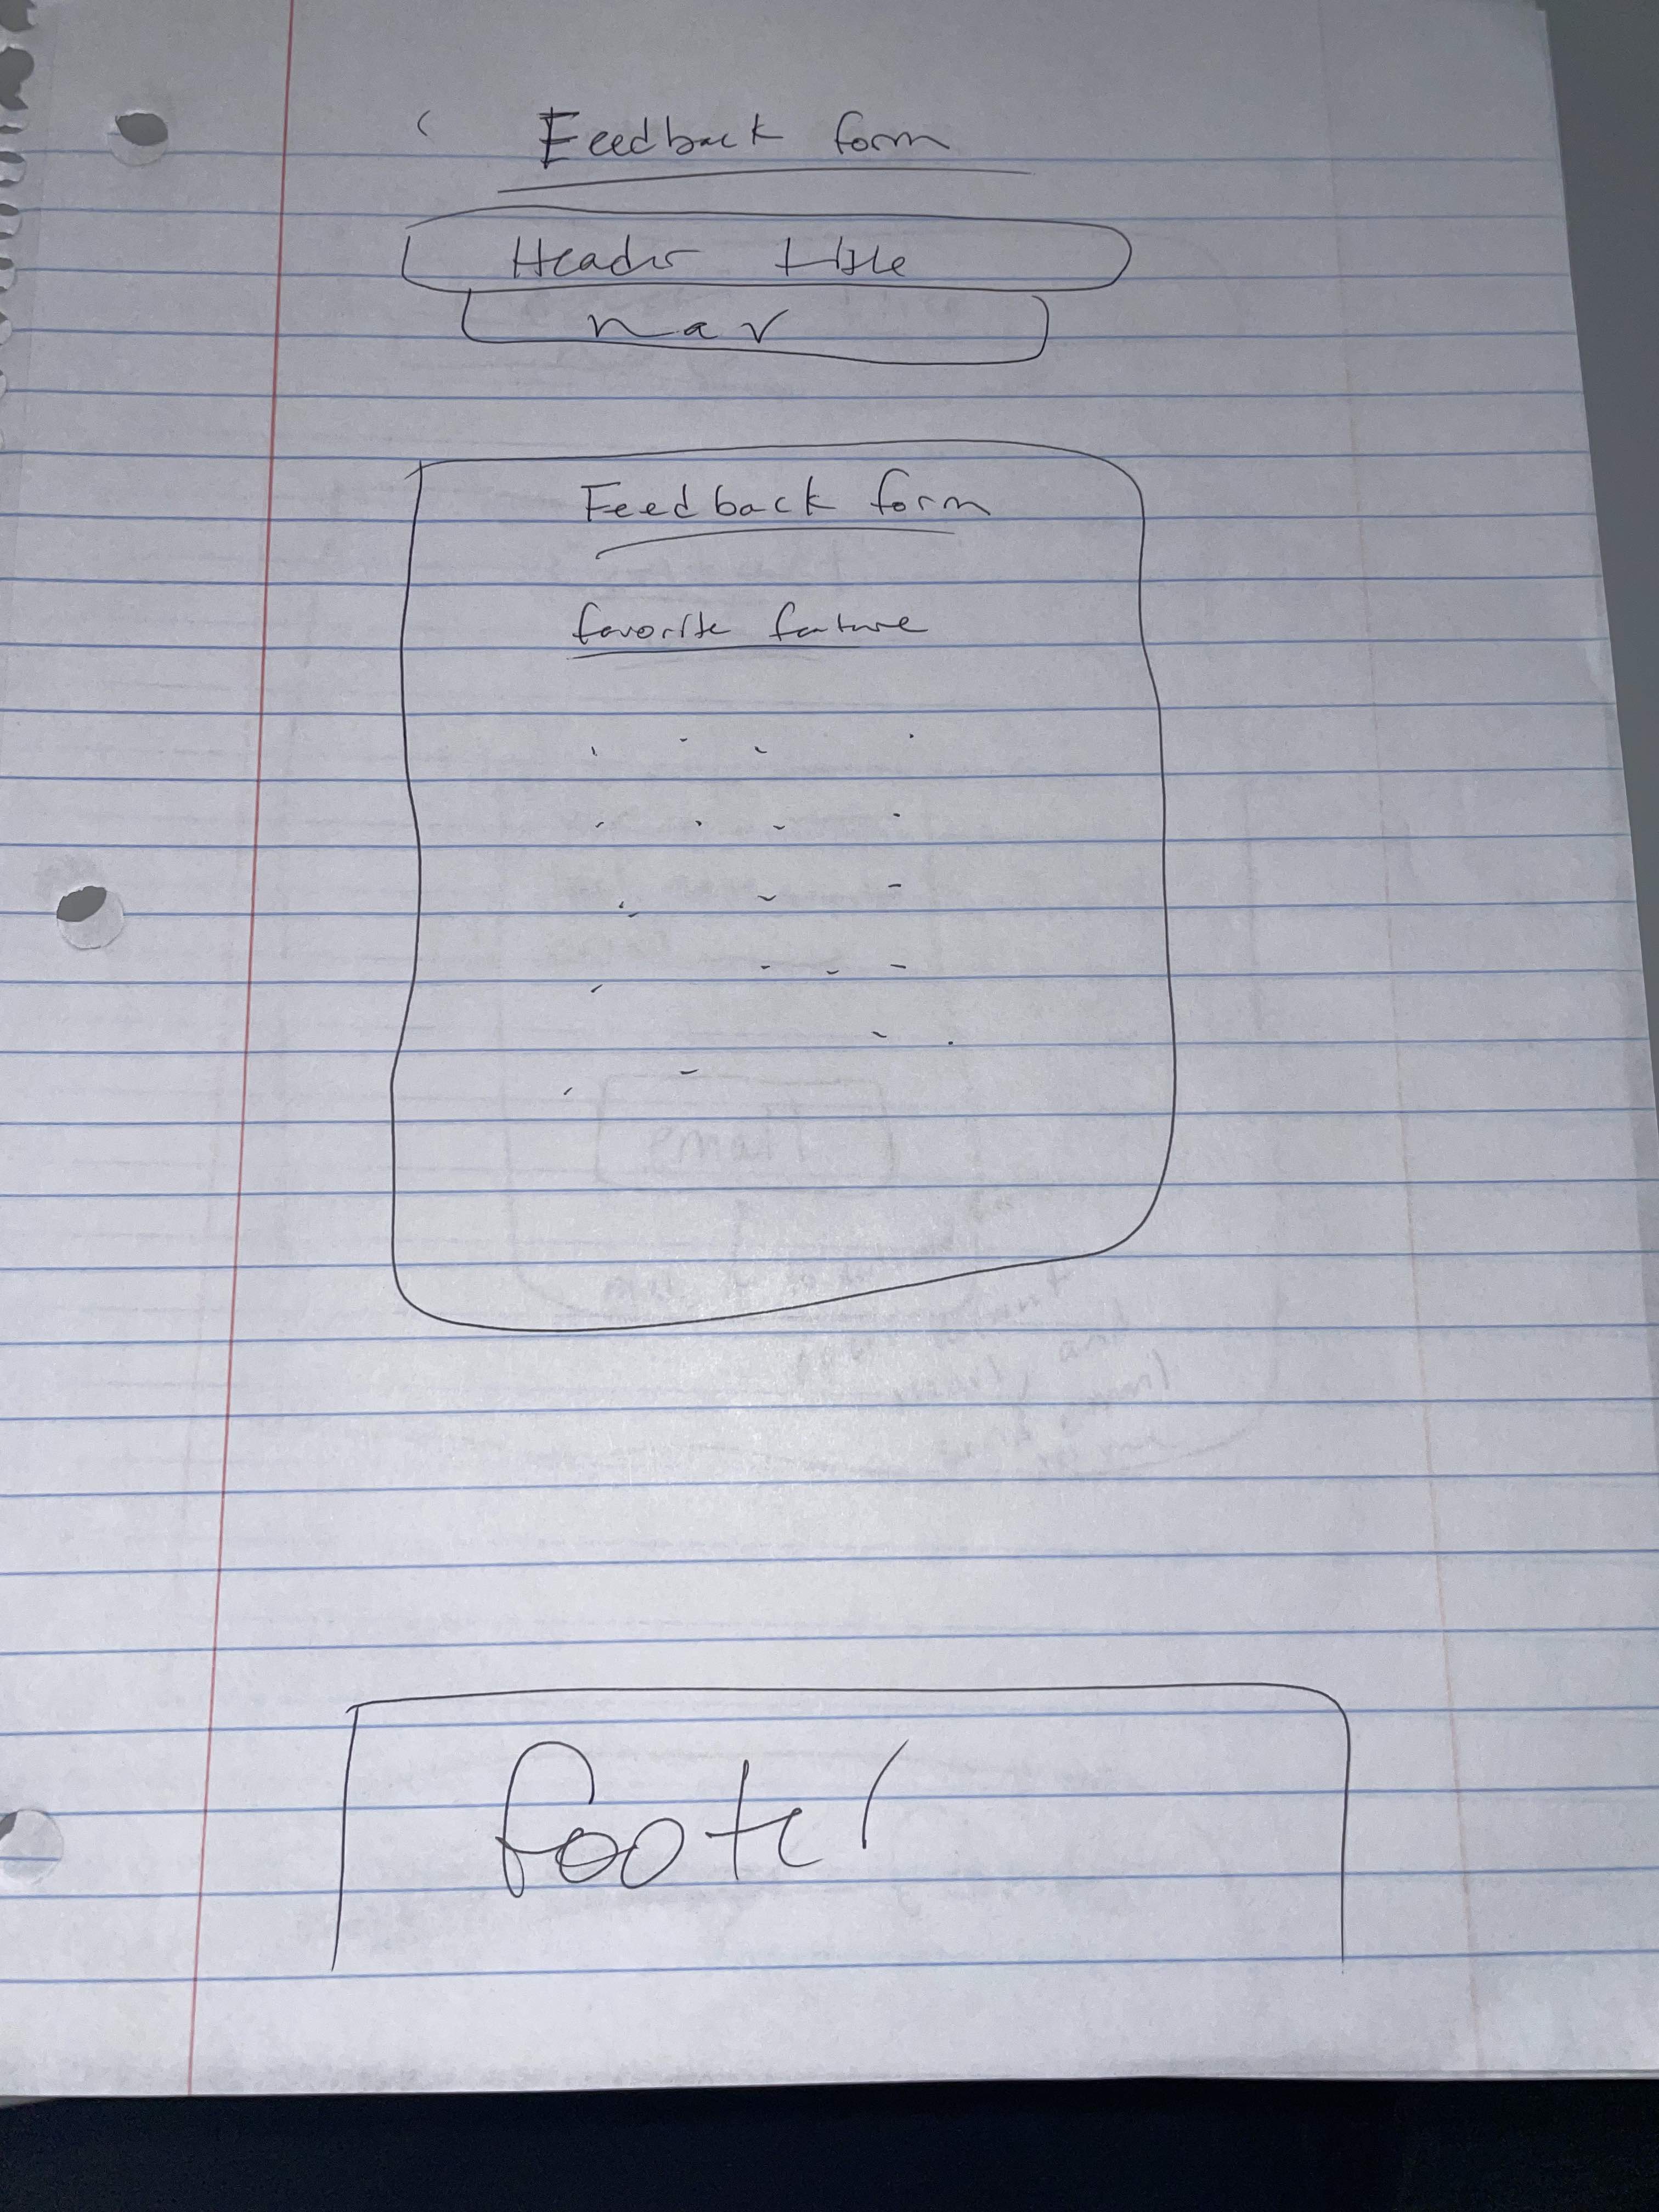 Feedback form
Header title
nav
Feedback form
favorite feature
footer